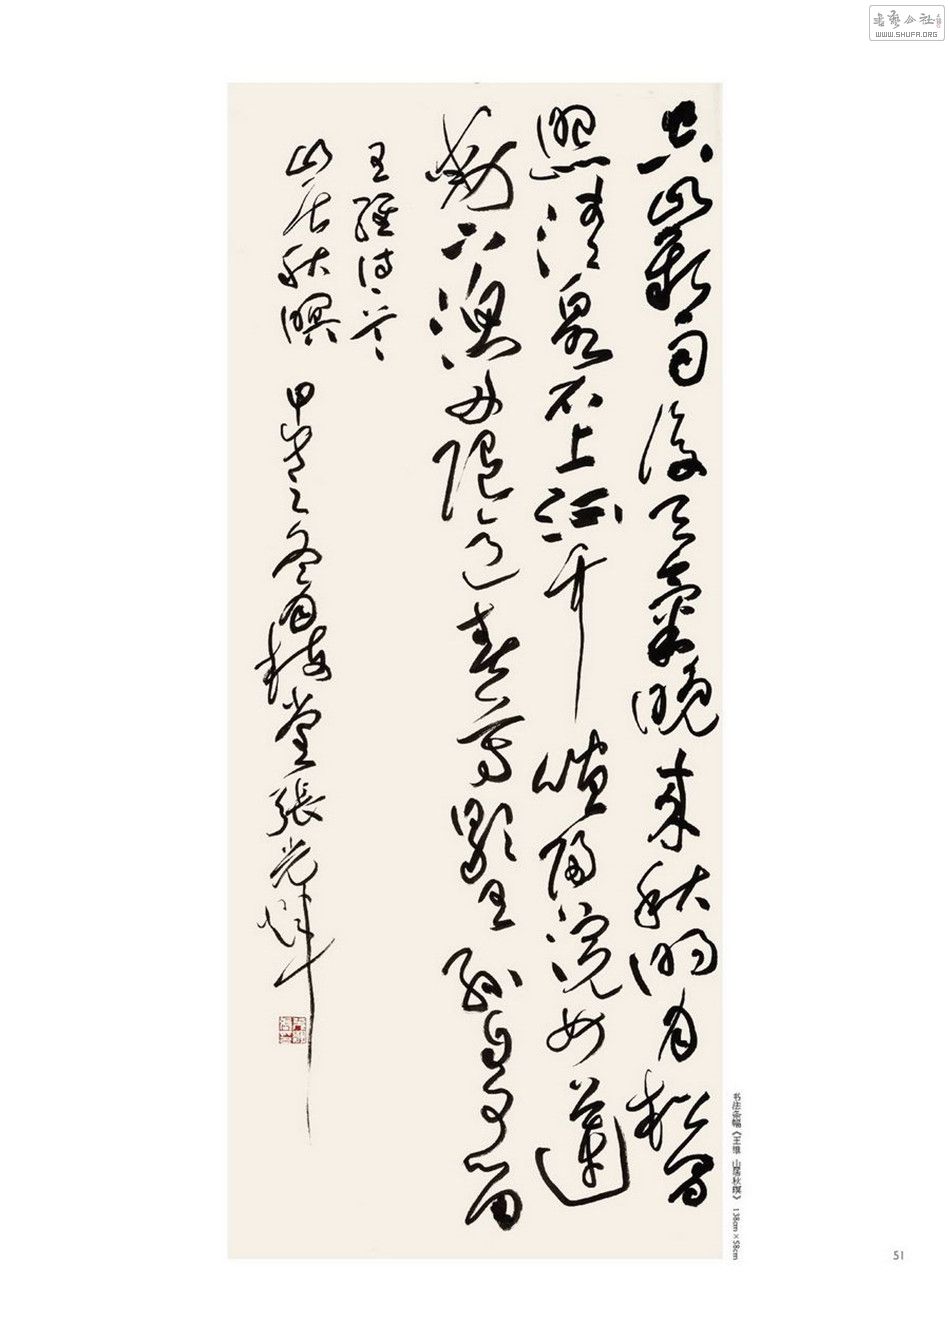 書藝公社
WWW.SHUFA.ORG
空山新雨後天氣晚來秋明月松間
照清泉石上流竹喧歸浣女蓮
動下漁舟隨意春芳歇王孫自可留
王維詩
山居秋暝 甲之冬月梅堂張光輝
书法条幅《王维 山居秋暝》 138cm×58cm
51